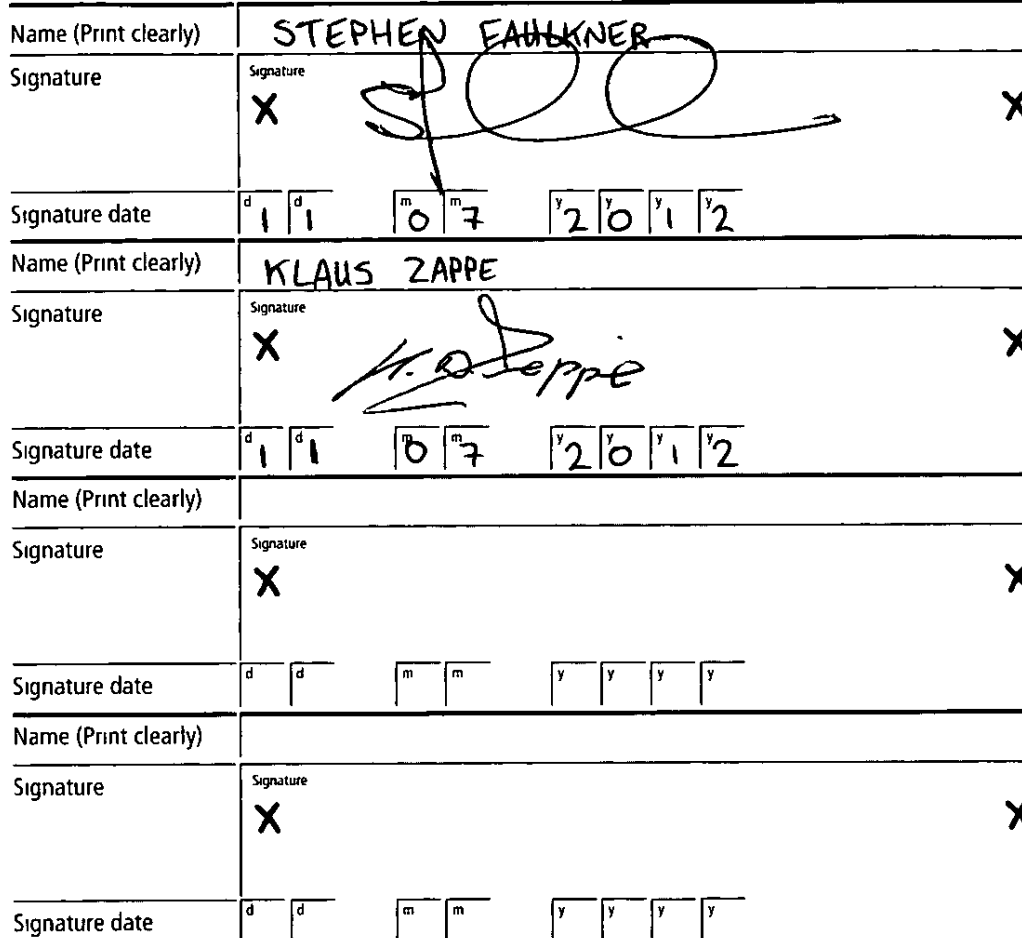 Name (Print clearly) STEPHEN FAULKNER
Signature Signature
X X
Signature date d 1 d 1 m 0 m 7 y 2 y 0 y 1 y 2
Name (Print clearly) KLAUS ZAPPE
Signature Signature
X X
Signature date d 1 d 1 m 0 m 7 y 2 y 0 y 1 y 2
Name (Print clearly)
Signature Signature
X X
Signature date d d m m y y y y
Name (Print clearly)
Signature Signature
X X
Signature date d d m m y y y y